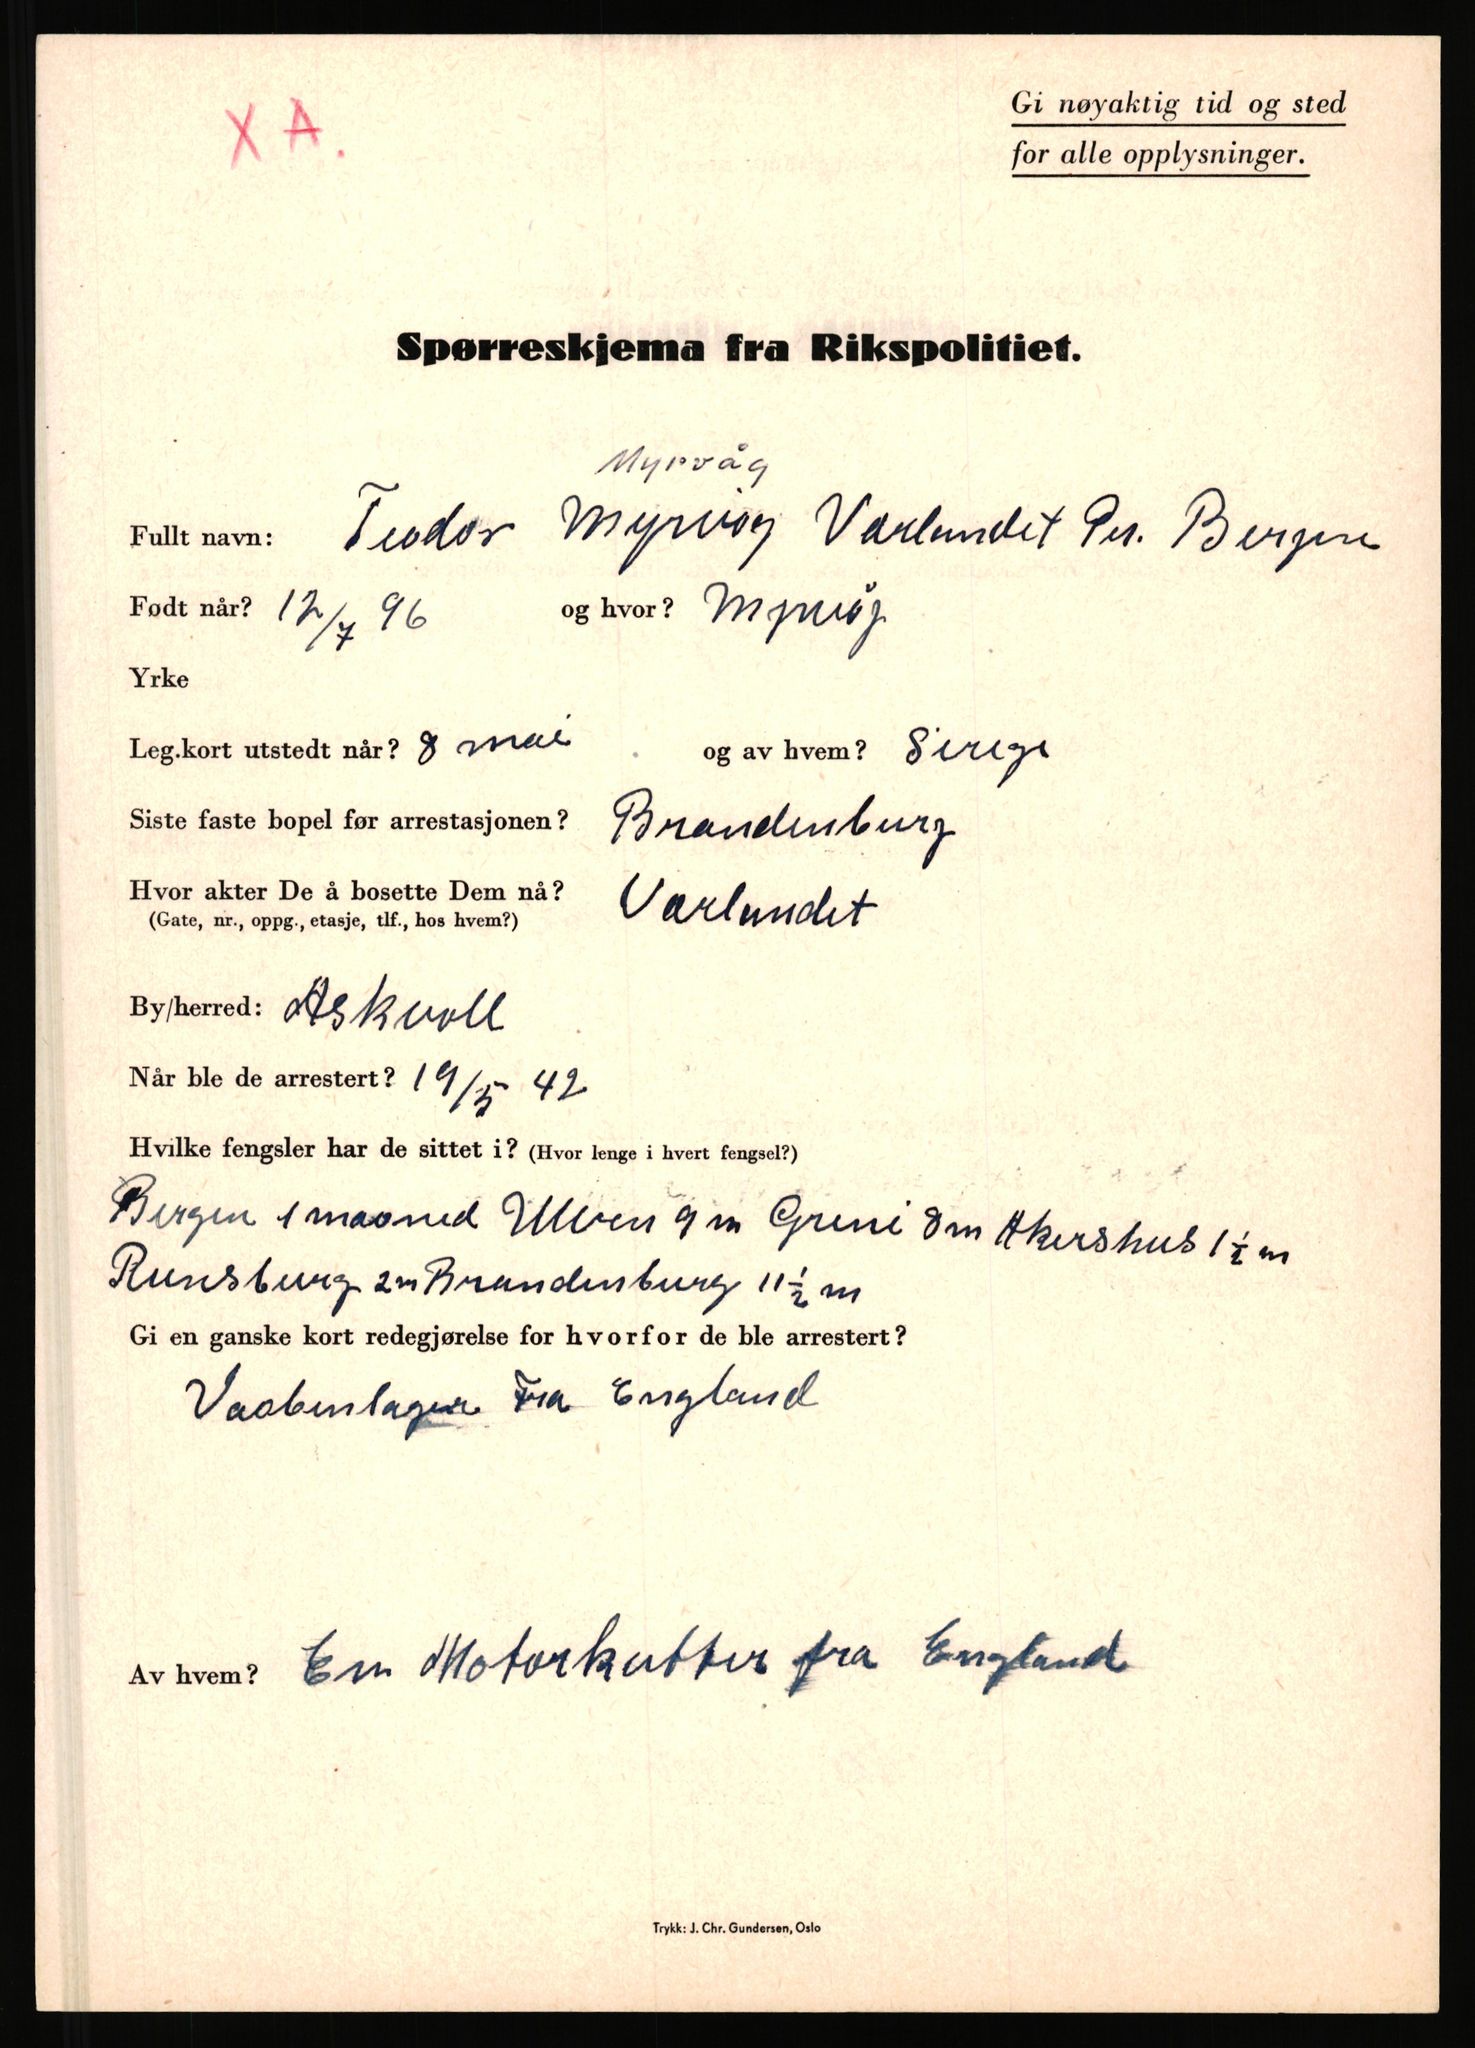 X A.
Gi nøyaktig tid og sted
for alle opplysninger.
Spørreskjema fra Rikspolitiet.
Myrvåg
Fullt navn: Teodor Myrvög Værlandet Pr. Bergen
Født når? 12/7 96 og hvor? Myrvög
Yrke
Leg.kort utstedt når? 8 mai og av hvem?
Siste faste bopel før arrestasjonen? Brandenburg
Hvor akter De å bosette Dem nå? Værlandet
(Gate, nr., oppg., etasje, tlf., hos hvem?)
By/herred: Askvoll
Når ble de arrestert? 19/5 42
Hvilke fengsler har de sittet i? (Hvor lenge i hvert fengsel?)
Bergen 1 maaned Ulven 9 m Greni 8 m Akershus 1 ½ m
Runsburg 2 m Brandenburg 11 ½ m
Gi en ganske kort redegjørelse for hvorfor de ble arrestert?
Vaabenlager Fra England
Av hvem? En Motorkutter fra England
Trykk: J. Chr. Gundersen, Oslo